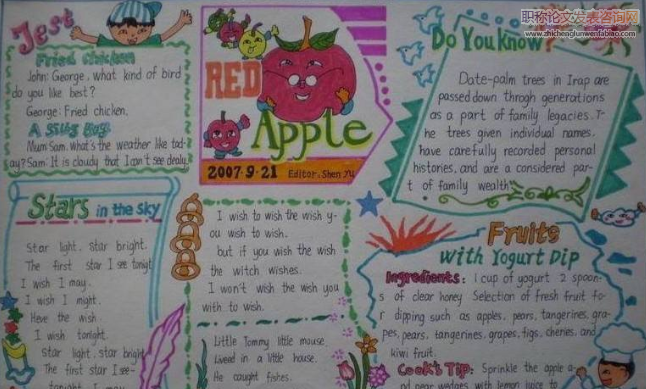 职称论文发表咨询网
www.zhichenglunwenfabiao.com
Jest
Fried Chicken
John: George, what kind of bird
do you like best?
George: Fried chicken.
A Silly Boy
Mum: Sam. what's the weather like tod-
ay? Sam: It is cloudy that I can't see
RED
Apple
2007·9·21 Editor: Shen
Do You Know?
Date-palm trees in Iraq are
passed down throgh generations
as a part of family legacies. T-
he trees given individual names.
have carefully recorded personal
histories, and are a considered par-
t of family wealth.
Stars in the Sky
Star light, Star bright.
The first star I see tonigt
I wish I may.
I wish I might.
Have the wish
I wish tonight.
Star light, star bright
The first star I see-
tonight, I may
I wish to wish the wish y-
ou wish to wish.
but if you wish the wish
the witch wishes.
I won't wish the wish you
with to wish.
Little Tommy little mouse
Lived in a little house.
He caught fishes.
Fruits
With Yogurt Dip
Ingredients: 1 cup of yogurt 2 spoon-
s of clear honey Selection of fresh fruit fo-
r dipping such as apples, pears, tangerines, gra-
pes, pears, tangerines, grapes, figs, cheries, and
kiwi fruit.
Cook's Tip: Sprinkle the apple a-
nd pear wedges with lemon juice to